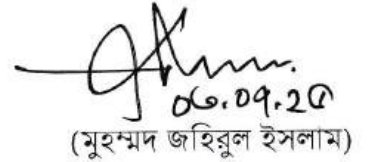 ০৬.০৭.২৫
(মুহম্মদ জহিরুল ইসলাম)